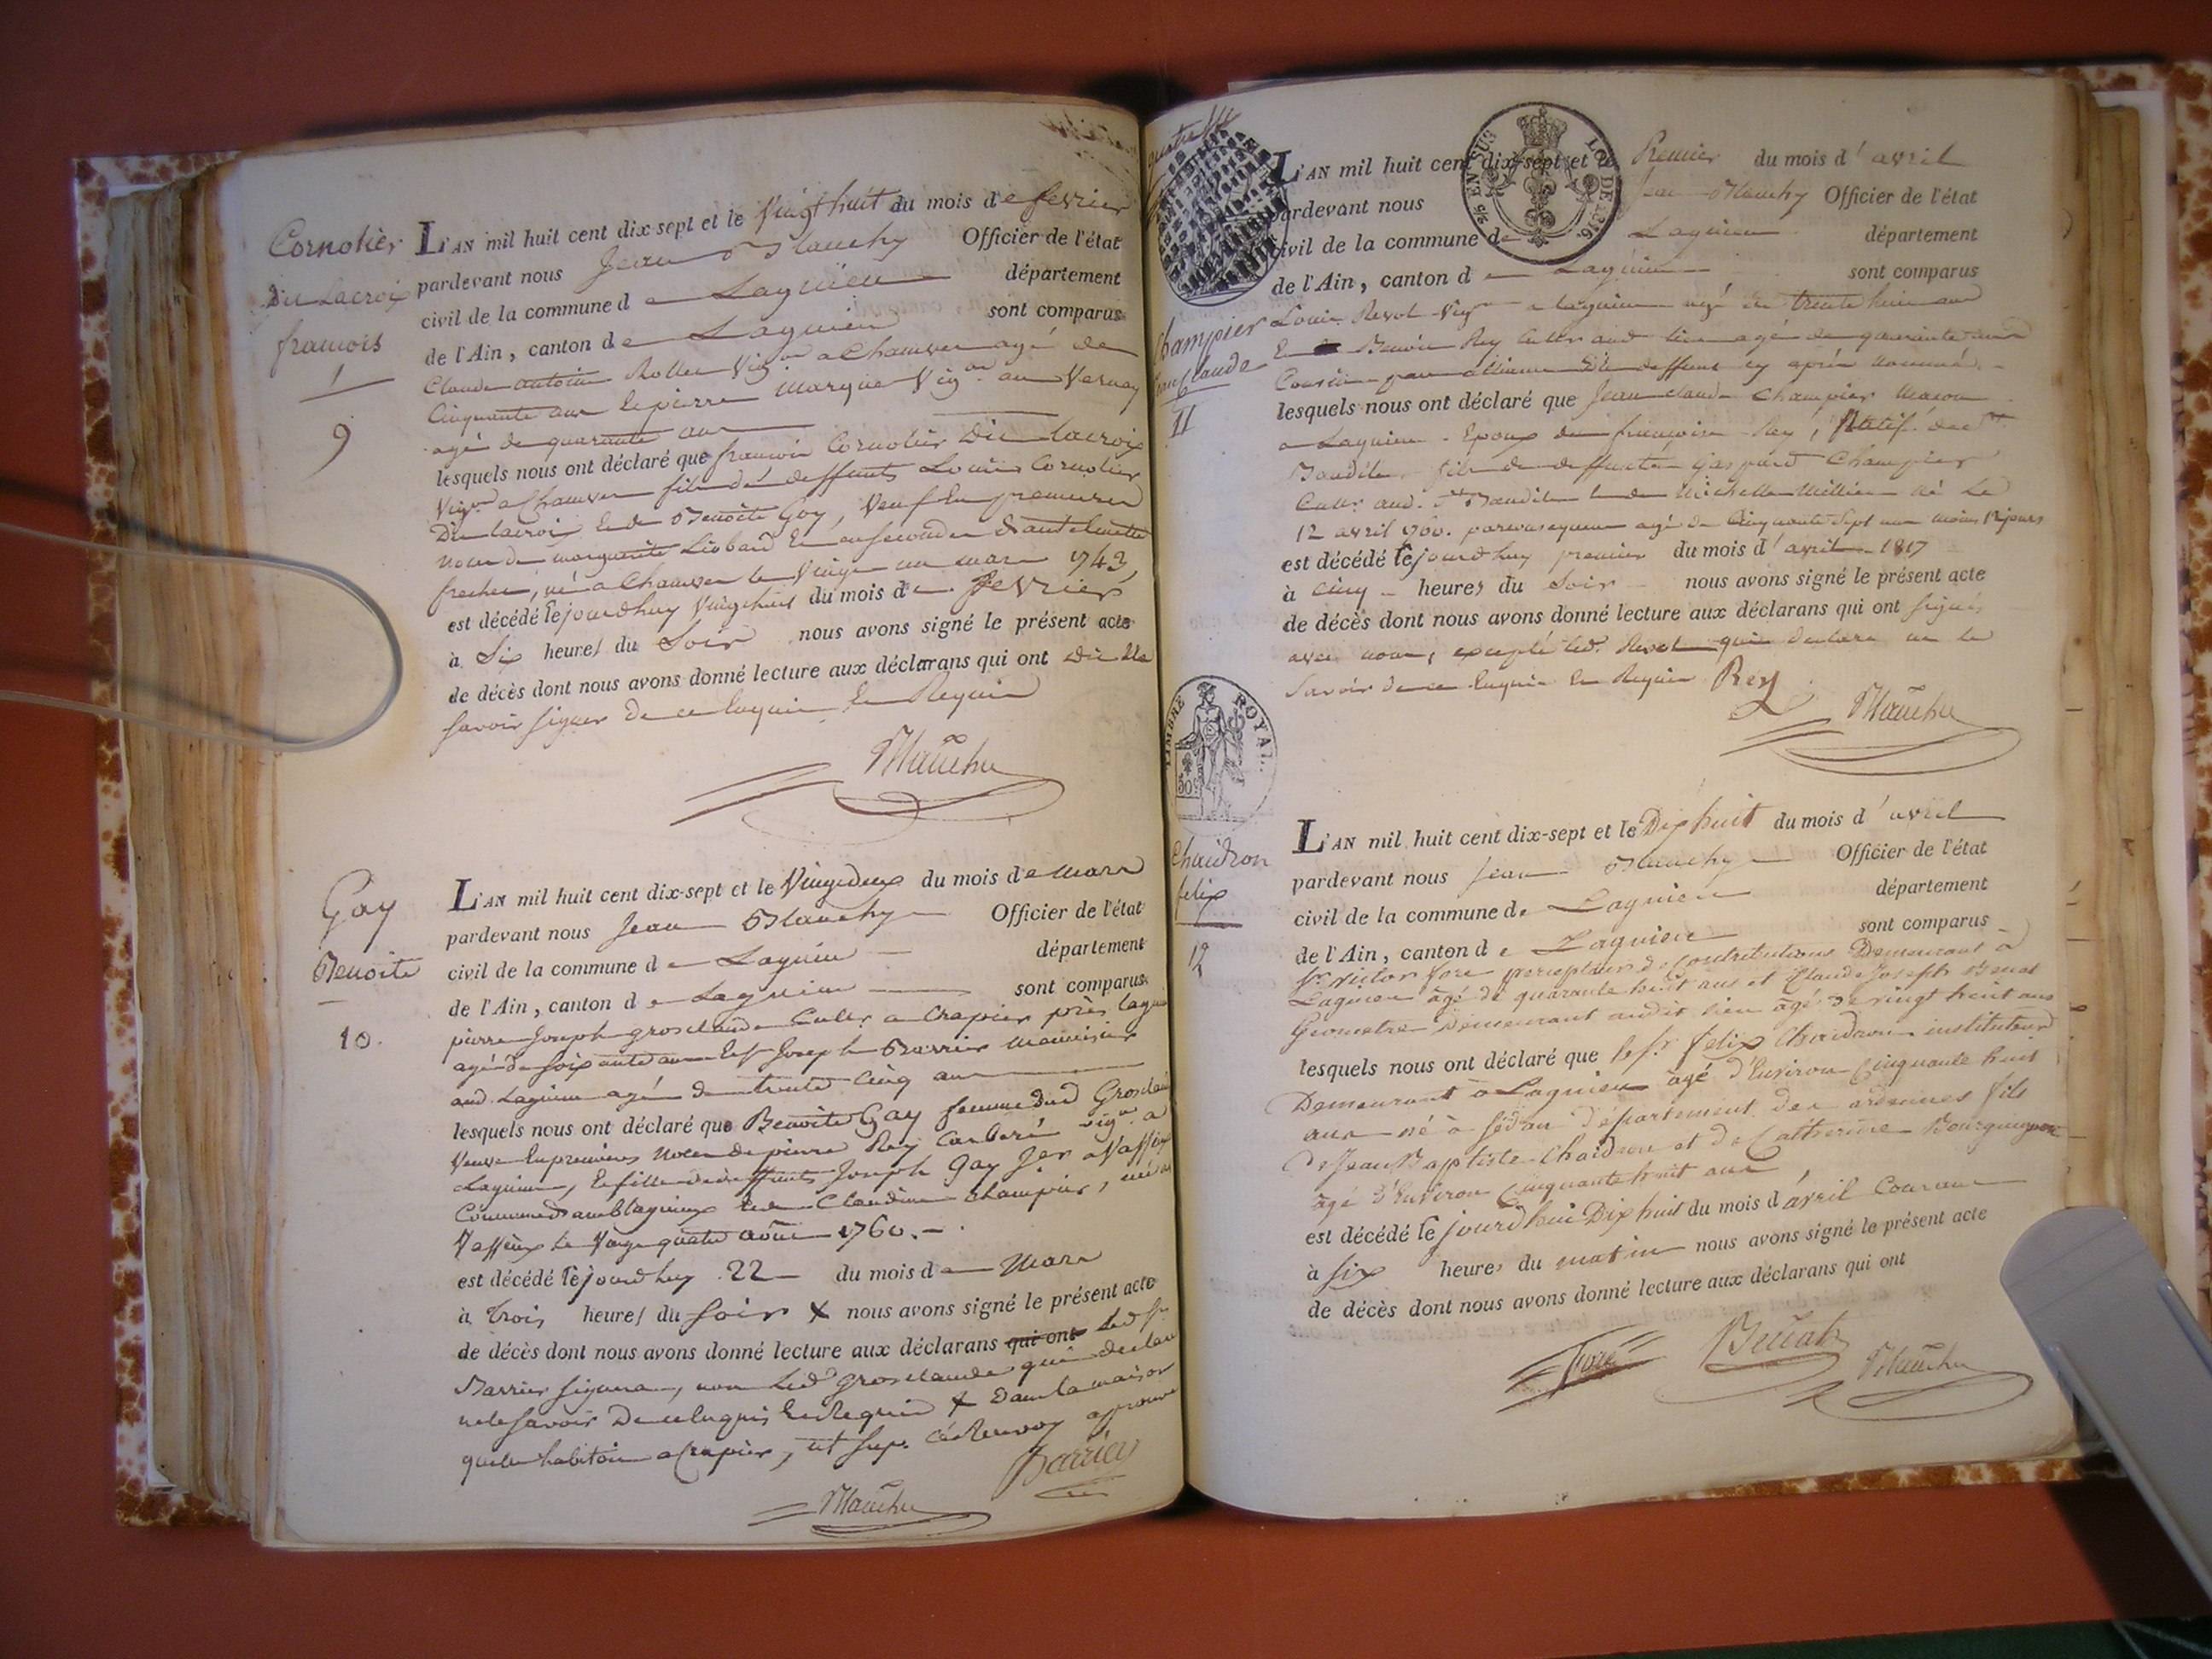 Cornotier
dit Lacroix
francois
9
L'AN mil huit cent dix-sept et le Vingt huit du mois de fevrier
pardevant nous Jean Blanchy Officier de l'état
civil de la commune de Lagnieu département
de l'Ain, canton de Lagnieu sont comparus
Claude antoine Rollet Vig.on a Chanves agé de
Cinquante ans et pierre Marque Vig.on au Vernay
agé de quarante ans
lesquels nous ont déclaré que francois Cornotier Dit lacroix
Vig.on a Chanves fils de deffunts Louis Cornotier
Dit lacroix et de Benoite Goy, Veuf en premieres
noces de marguerite Liobard et en secondes d'antelmette
né a Chanves le Vingt un mars 1743,
est décédé le jourdhuy Vingthuit du mois de Fevrier
à Six heures du Soir nous avons signé le présent acte
de décès dont nous avons donné lecture aux déclarans qui ont dit Ne
savoir signer de ce Enquis et Requis
Gay
Benoite
10.
L'AN mil huit cent dix-sept et le Vingt deux du mois de mars
pardevant nous Jean Blanchy Officier de l'état
civil de la commune de Lagnieu département
de l'Ain, canton de Lagnieu sont comparus
pierre Joseph grosclaude Cult.r a Crapier près lagnieu
agé de soixante ans et Joseph Barrier Menuisier
aud. Lagnieu agé de trente cinq ans
lesquels nous ont déclaré que Benoite Gay femme dud Grosclaude
Veuve en premieres noces de pierre Rey vig.on a
Lagnieu, et fille de deffunts Joseph Gay a Vassieux
Commune d'amblagnieux et de Claudine Champier, née a
Vassieux le Vingt quatre août 1760.
est décédé le jourdhuy 22 du mois de Mars
à Trois heures du soir X nous avons signé le présent acte
de décès dont nous avons donné lecture aux déclarans qui ont Led S.r
Barrier signera, non Led grosclaude qui declare
ne le savoir De ce Enquis et Requis X Dans la maison
quelle habitoit a Crapier, ut sup. ce Renvoy approuvé
Barrier
quatre
Champier
Jean Claude
11
L'AN mil huit cent dix-sept et le Premier du mois d'avril
pardevant nous Jean Blanchy Officier de l'état
civil de la commune de Lagnieu département
de l'Ain, canton de Lagnieu sont comparus
EN SUS
LOI DE 1816.
Louis Revol Vig.on a lagnieu agé de trente huit ans
Et Benoit Rey Cult.r aud lieu agé de quarante ans
Cousin par alliance du deffunt cy après nommé
lesquels nous ont déclaré que Jean claude Champier Macon
a Lagnieu Epoux de françoise Rey, Natif de S.t
Baudille fils de deffunts Gaspard Champier
Cult.r aud. S.t Baudille et de Michelle Millier né Le
12 avril 1760. par consequent agé de Cinquante Sept ans moins 12 jours
est décédé le jourdhuy premier du mois d'avril 1817
à cinq heures du Soir nous avons signé le présent acte
de décès dont nous avons donné lecture aux déclarans qui ont signé
avec nous, excepté led. Revol qui declare ne le
Savoir de ce Enquis Et Requis Rey
TIMBRE ROYAL.
Chaidron
felix
12
L'AN mil huit cent dix-sept et le Dix huit du mois d'avril
pardevant nous Jean Blanchy Officier de l'état
civil de la commune de Lagnieu département
de l'Ain, canton de Lagnieu sont comparus
Sr. Victor fore percepteur de Contributions Demeurant à
Lagnieu âgé de quarante huit ans et Claude Joseph Benat
Geometre Demeurant audit lieu âgé de vingt huit ans
lesquels nous ont déclaré que le sr. felix Chaidron instituteur
Demeurant à Lagnieu âgé d'Environ Cinquante huit
ans né à sédan département des ardennes fils
De Jean Baptiste Chaidron et de Catherine
âgé d'Environ Cinquante huit ans,
est décédé le jourd'hui Dix huit du mois d'avril Courant
à six heures du matin nous avons signé le présent acte
de décès dont nous avons donné lecture aux déclarans qui ont
fore Benat